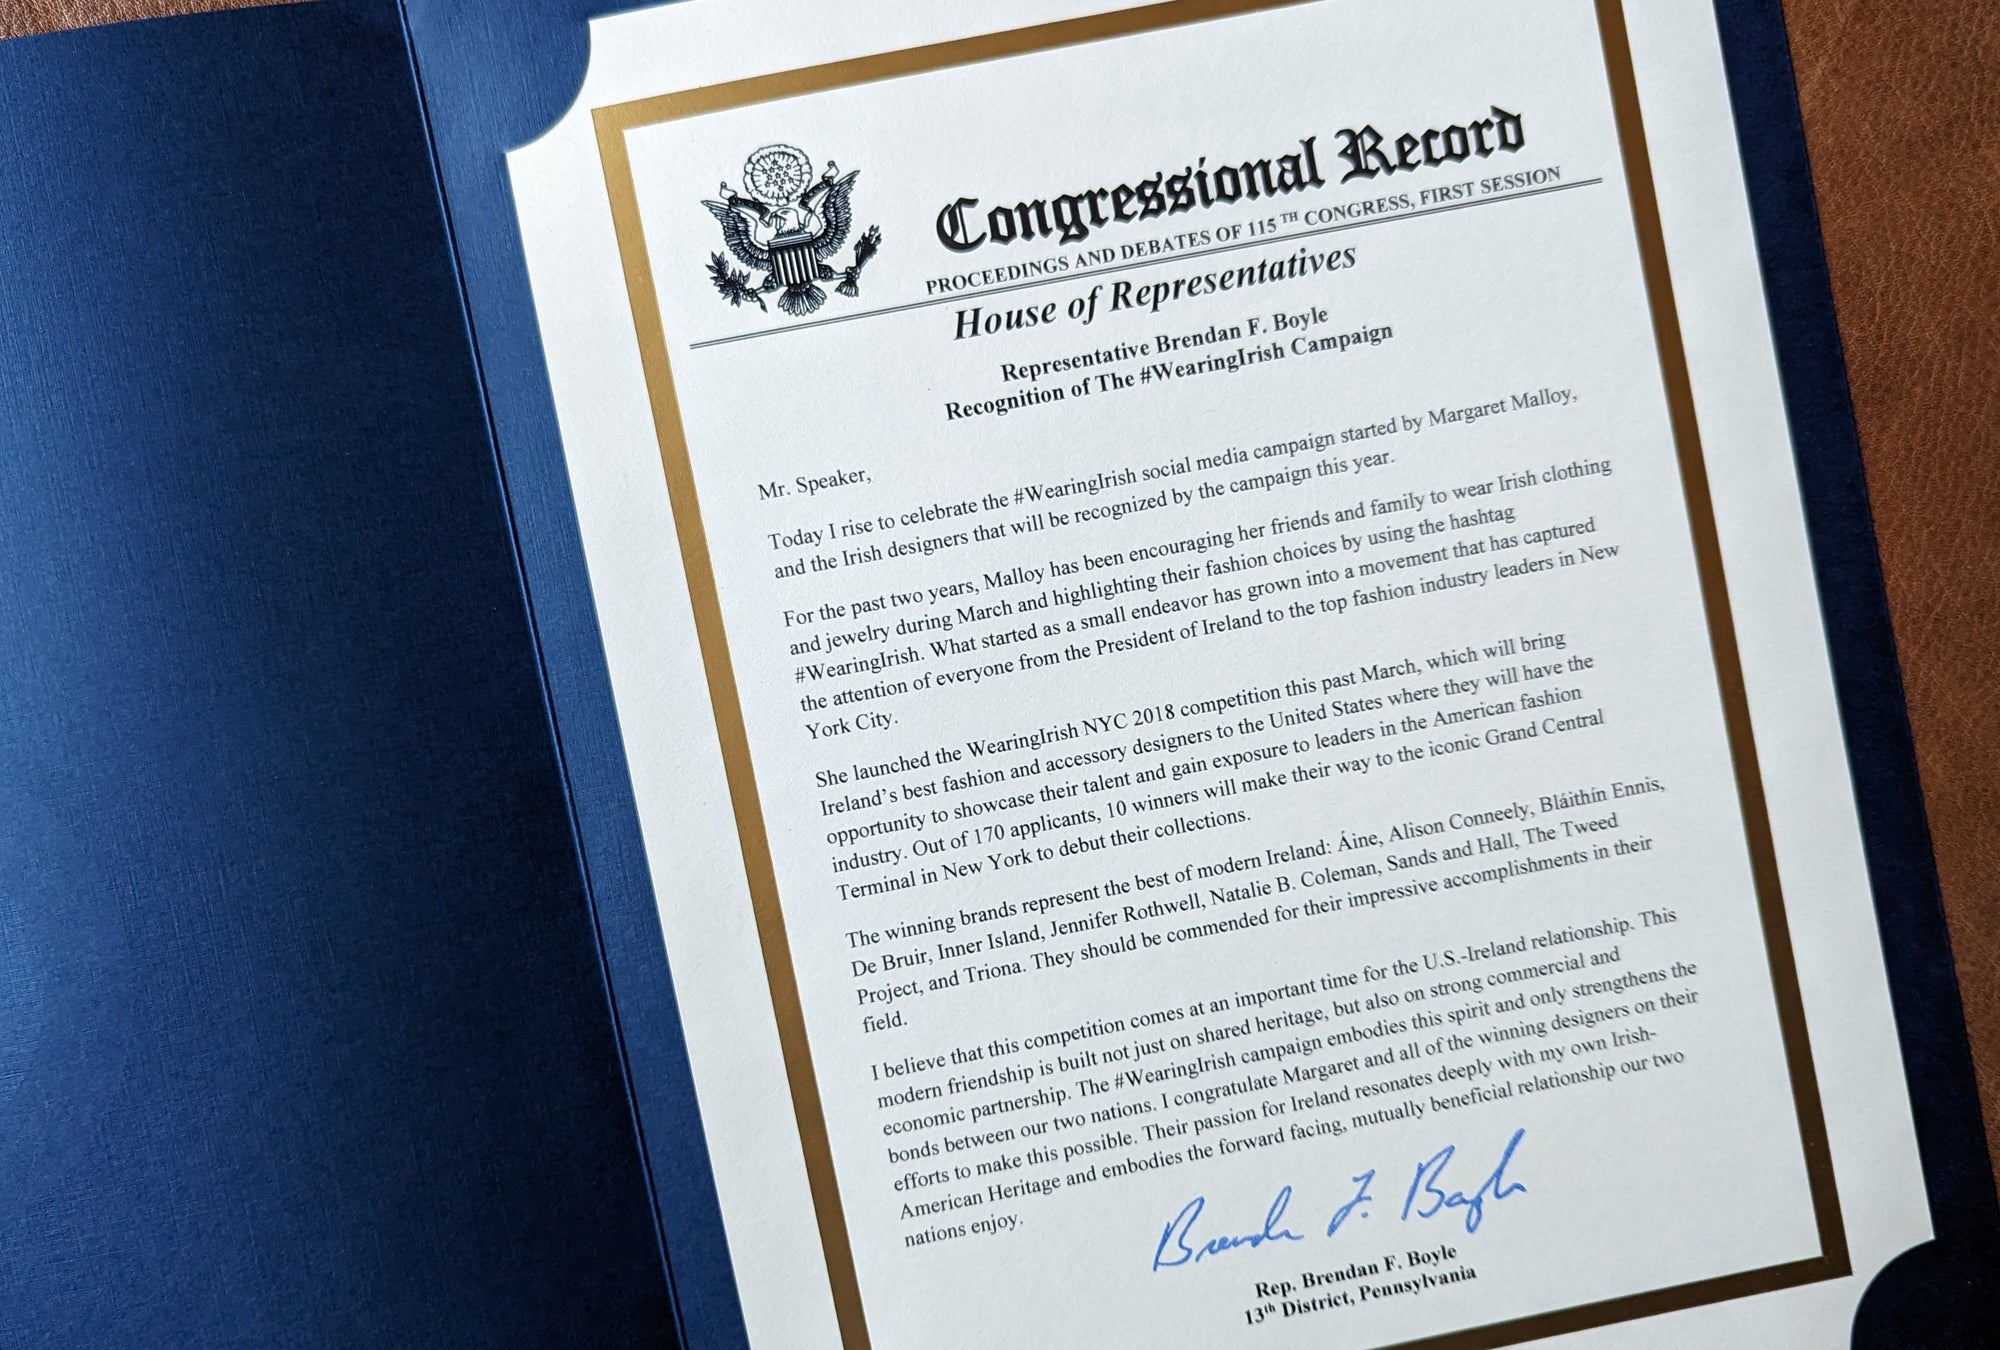 Congressional Record
PROCEEDINGS AND DEBATES OF 115TH CONGRESS, FIRST SESSION
House of Representatives
Representative Brendan F. Boyle
Recognition of The #WearingIrish Campaign
Mr. Speaker,
Today I rise to celebrate the #WearingIrish social media campaign started by Margaret Malloy,
and the Irish designers that will be recognized by the campaign this year.
For the past two years, Malloy has been encouraging her friends and family to wear Irish clothing
and jewelry during March and highlighting their fashion choices by using the hashtag
#WearingIrish. What started as a small endeavor has grown into a movement that has captured
the attention of everyone from the President of Ireland to the top fashion industry leaders in New
York City.
She launched the WearingIrish NYC 2018 competition this past March, which will bring
Ireland's best fashion and accessory designers to the United States where they will have the
opportunity to showcase their talent and gain exposure to leaders in the American fashion
industry. Out of 170 applicants, 10 winners will make their way to the iconic Grand Central
Terminal in New York to debut their collections.
The winning brands represent the best of modern Ireland: Áine, Alison Conneely, Bláithín Ennis,
De Bruir, Inner Island, Jennifer Rothwell, Natalie B. Coleman, Sands and Hall, The Tweed
Project, and Triona. They should be commended for their impressive accomplishments in their
field.
I believe that this competition comes at an important time for the U.S.-Ireland relationship. This
modern friendship is built not just on shared heritage, but also on strong commercial and
economic partnership. The #WearingIrish campaign embodies this spirit and only strengthens the
bonds between our two nations. I congratulate Margaret and all of the winning designers on their
efforts to make this possible. Their passion for Ireland resonates deeply with my own Irish-
American Heritage and embodies the forward facing, mutually beneficial relationship our two
nations enjoy.
Brendan F. Boyle
Rep. Brendan F. Boyle
13th District, Pennsylvania